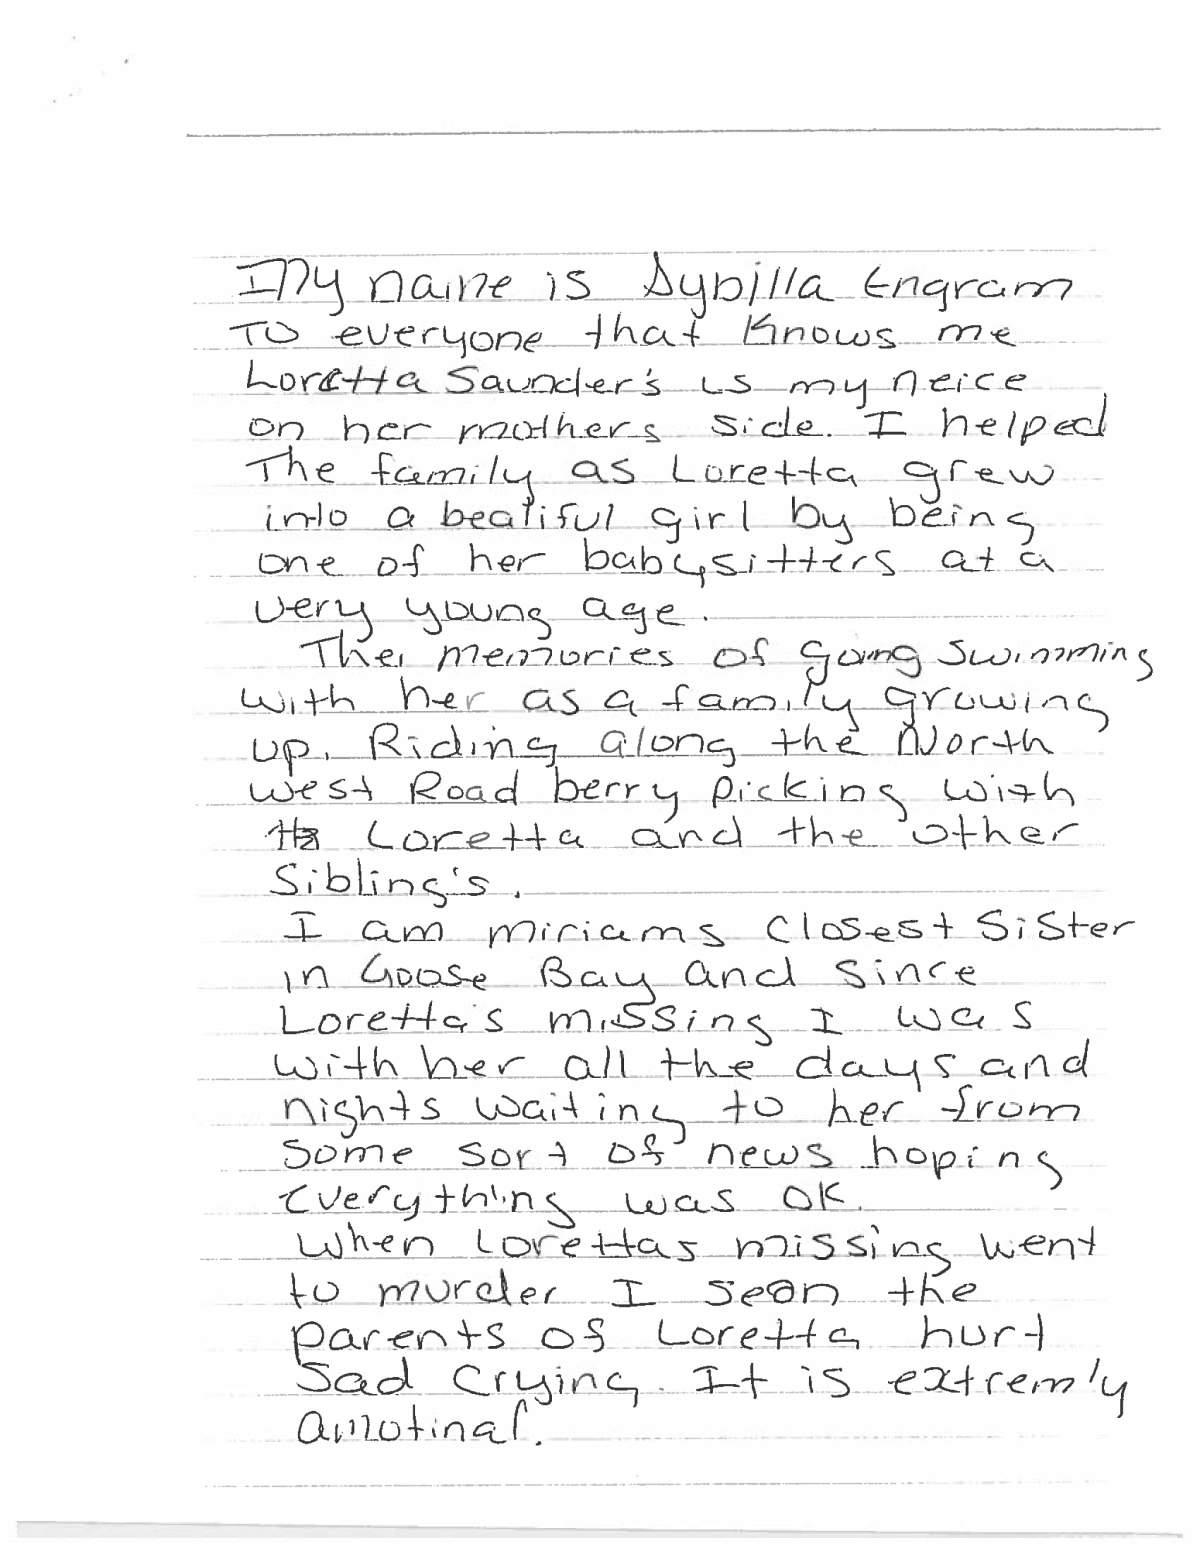 My name is Sybilla Engram
To everyone that Knows me
Loretta Saunder's is my neice
on her mothers side. I helped
The family as Loretta grew
into a beatiful girl by being
one of her babysitters at a
very young age.
The memories of going swimming
with her as a family growing
up. Riding along the North
West Road berry picking with
Loretta and the other
Sibling's.
I am miriams closest Sister
in Goose Bay and since
Loretta's missing I was
with her all the days and
nights waiting to her from
some sort of news hoping
everything was OK.
When Lorettas missing went
to murder I seen the
parents of Loretta hurt
Sad Crying. It is extremly
amotinal.